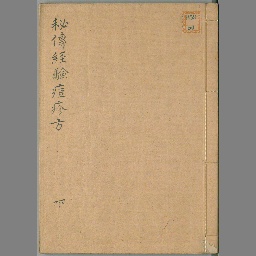 秘傳経驗痘疹方
下